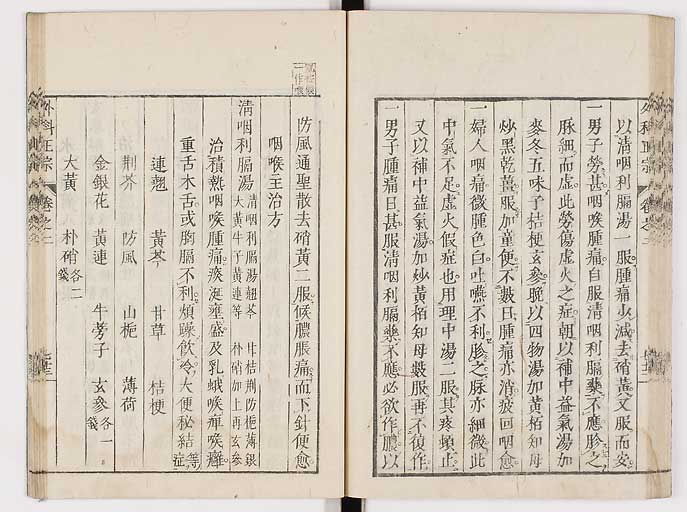 以清咽利膈湯一服腫痛少減去硝黃又服而安
一男子勞甚咽喉腫痛自服清咽利膈藥不應胗之
脉細而虛此勞傷虛火之症朝以補中益氣湯加
麥冬五味子桔梗玄參晚以四物湯加黃栢知母
炒黑乾薑服加童便不數日腫痛亦消疲回咽愈
一婦人咽痛微腫色白吐嚥不利胗之脉亦細微此
中氣不足虛火假症也用理中湯二服其疼頓止
又以補中益氣湯加炒黃栢知母數服再不復作
一男子腫痛日甚服清咽利膈藥不應必欲作膿以
外科正宗 卷之二
防風通聖散去硝黃二服候膿脹痛而下針便愈
咽喉主治方
清咽利膈湯 清咽利膈湯翹芩 甘桔荆防梔薄銀 大黃牛子黃連等 朴硝加上再玄參
治積熱咽喉腫痛痰涎壅盛及乳蛾喉痺喉癰
重舌木舌或胸膈不利煩躁飲冷大便秘結等症
連翹 黃芩 甘草 桔梗
荆芥 防風 山梔 薄荷
金銀花 黃連 牛蒡子 玄參各一錢
大黃 朴硝各二錢
外科正宗 卷之二